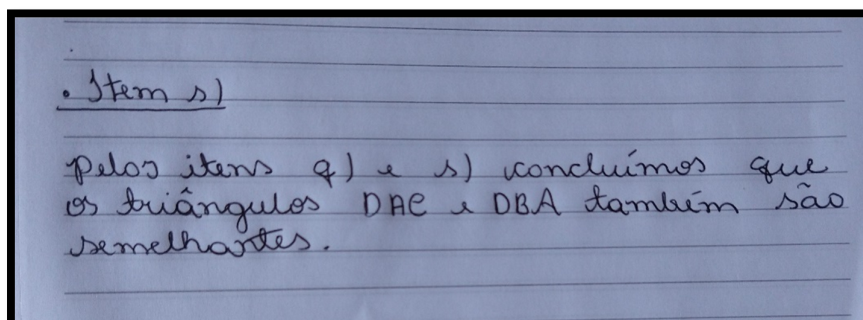 . Item s)
Pelos itens q) e s) concluímos que
os triângulos DAC e DBA também são
semelhantes.